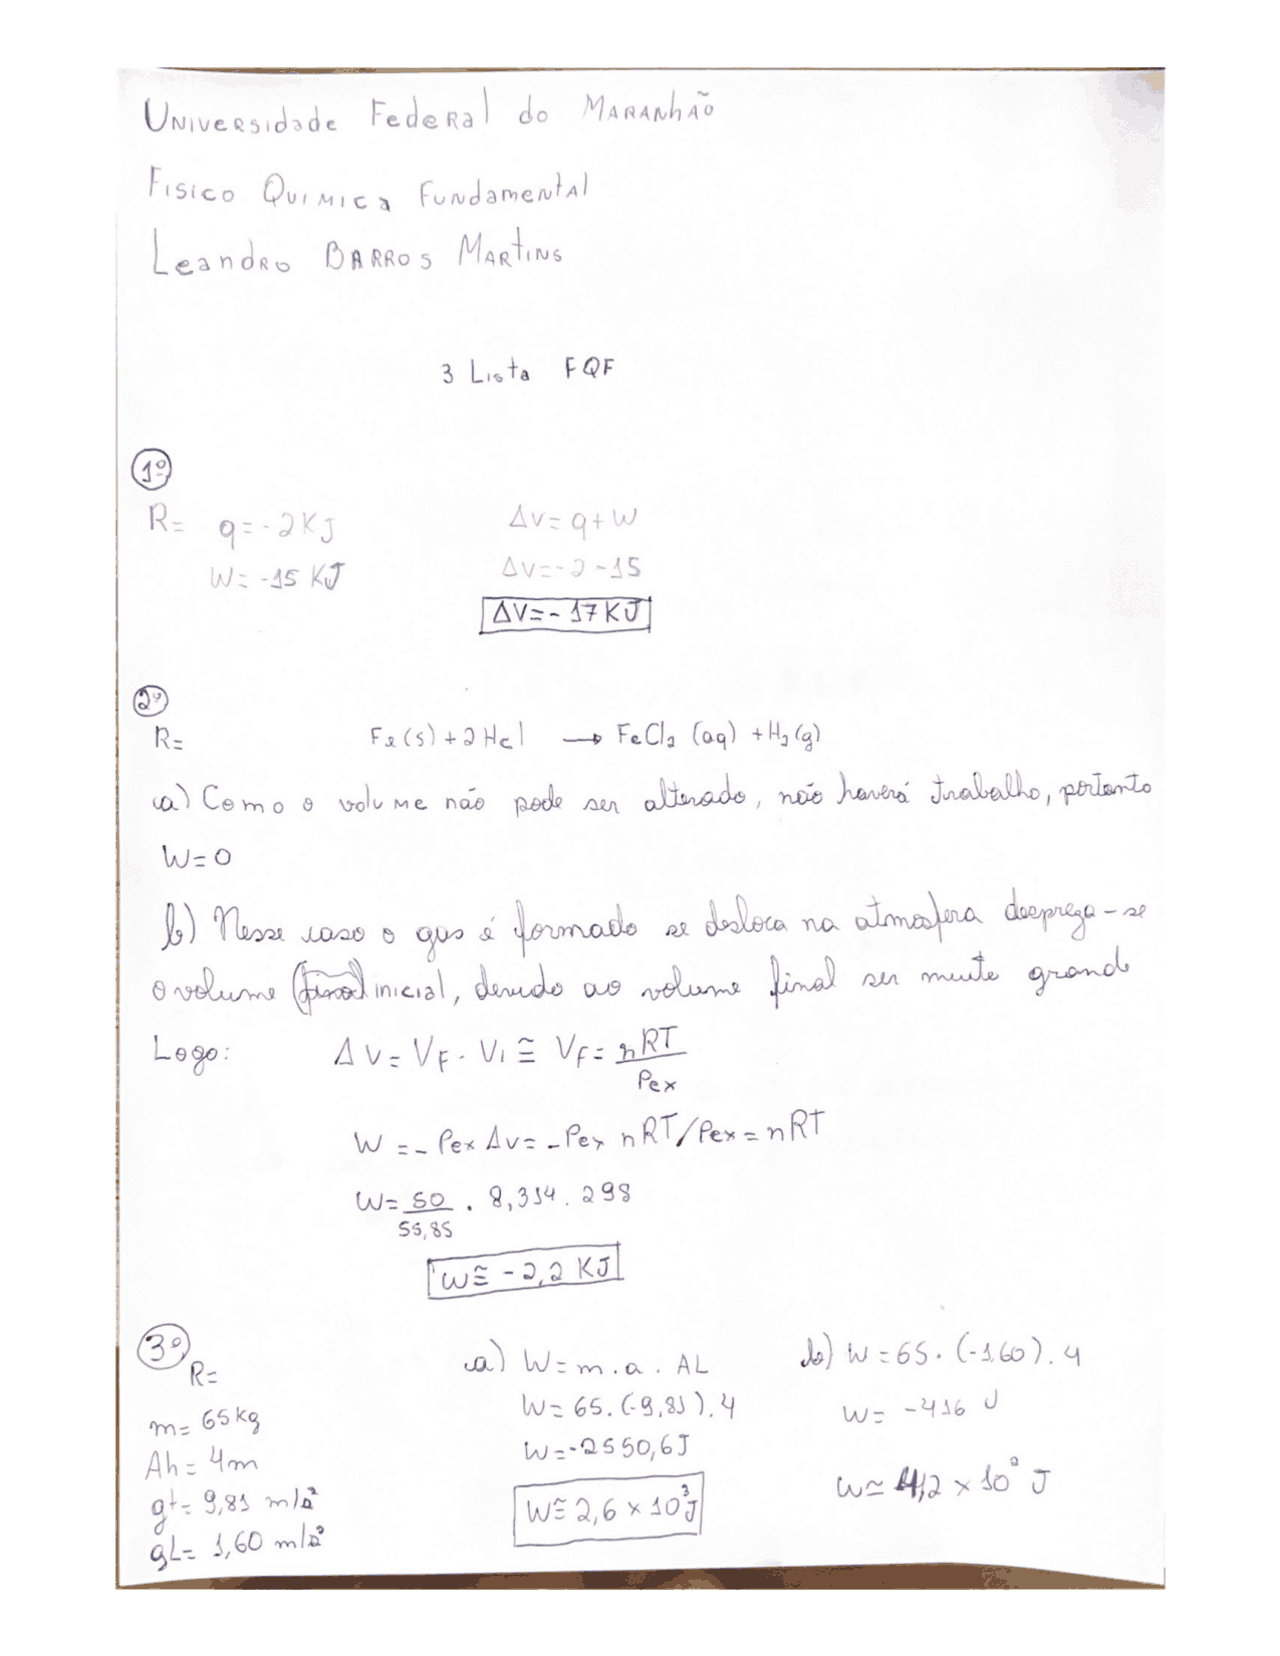 Universidade Federal do Maranhão
Fisico Quimica Fundamental
Leandro Barros Martins
3 Lista FQF
1º
R= q=-2KJ ΔV=q+W
W=-15 KJ ΔV=-2-15
ΔV=-17KJ
2º
R= Fe(s)+2Hcl → FeCl2 (aq) +H2(g)
a) Como o volume não pode ser alterado, não haverá trabalho, portanto
W=0
b) Nesse caso o gas é formado se desloca na atmosfera despreza-se
o volume (final) inicial, devido ao volume final ser muito grande
Logo: ΔV=VF-Vi ≅ VF= nRT/Pex
W =-Pex ΔV=-Pex nRT/Pex=nRT
W= 50/55,85 . 8,314.298
W≅ -2,2 KJ
3º R= a) W=m.a. AL b) W=65.(-1,60).4
m= 65kg W=65.(-9,81).4 W= -416 J
Ah=4m W=-2550,6J W≃ 4,2 x 10² J
gt= 9,81 m/s² W≅2,6 x 10³J
gL= 1,60 m/s²